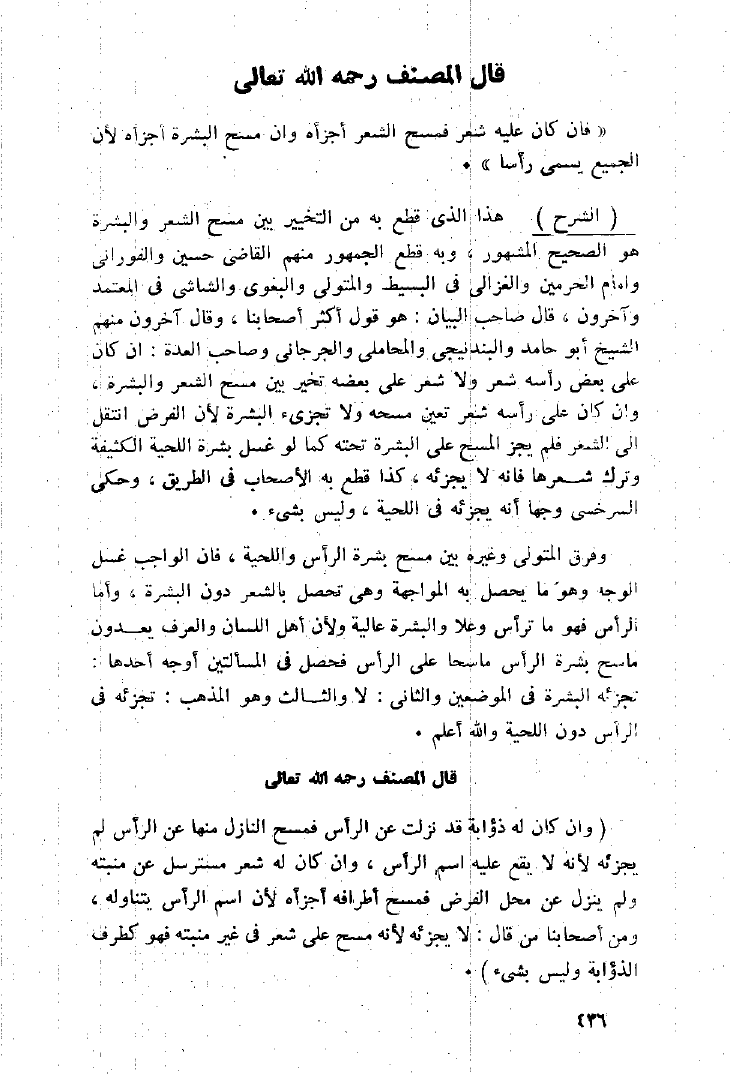 قال المصنف رحمه الله تعالى
« فان كان عليه شعر فمسح الشعر أجزأه وان مسح البشرة أجزأه لأن
الجميع يسمى رأسا » .
( الشرح ) هذا الذى قطع به من التخيير بين مسح الشعر والبشرة
هو الصحيح المشهور ، وبه قطع الجمهور منهم القاضى حسين والفورانى
وامام الحرمين والغزالى فى البسيط والمتولى والبغوى والشاشى فى المعتمد
وآخرون ، قال صاحب البيان : هو قول أكثر أصحابنا ، وقال آخرون منهم
الشيخ أبو حامد والبندنيجى والمحاملى والجرجانى وصاحب العدة : ان كان
على بعض رأسه شعر ولا شعر على بعضه تخير بين مسح الشعر والبشرة ،
وان كان على رأسه شعر تعين مسحه ولا تجزىء البشرة لأن الفرض انتقل
الى الشعر فلم يجز المسح على البشرة تحته كما لو غسل بشرة اللحية الكثيفة
وترك شعرها فانه لا يجزئه ، كذا قطع به الأصحاب فى الطريق ، وحكى
السرخسى وجها أنه يجزئه فى اللحية ، وليس بشىء .
وفرق المتولى وغيره بين مسح بشرة الرأس واللحية ، فان الواجب غسل
الوجه وهو ما يحصل به المواجهة وهى تحصل بالشعر دون البشرة ، وأما
الرأس فهو ما ترأس وعلا والبشرة عالية ولأن أهل اللسان والعرف يعدون
ماسح بشرة الرأس ماسحا على الرأس فحصل فى المسألتين أوجه أحدها :
تجزئه البشرة فى الموضعين والثانى : لا والثالث وهو المذهب : تجزئه فى
الرأس دون اللحية والله أعلم .
قال المصنف رحمه الله تعالى
( وان كان له ذؤابة قد نزلت عن الرأس فمسح النازل منها عن الرأس لم
يجزئه لأنه لا يقع عليه اسم الرأس ، وان كان له شعر مسترسل عن منبته
ولم ينزل عن محل الفرض فمسح أطرافه أجزأه لأن اسم الرأس يتناوله ،
ومن أصحابنا من قال : لا يجزئه لأنه مسح على شعر فى غير منبته فهو كطرف
الذؤابة وليس بشىء ) .
٤٣٦